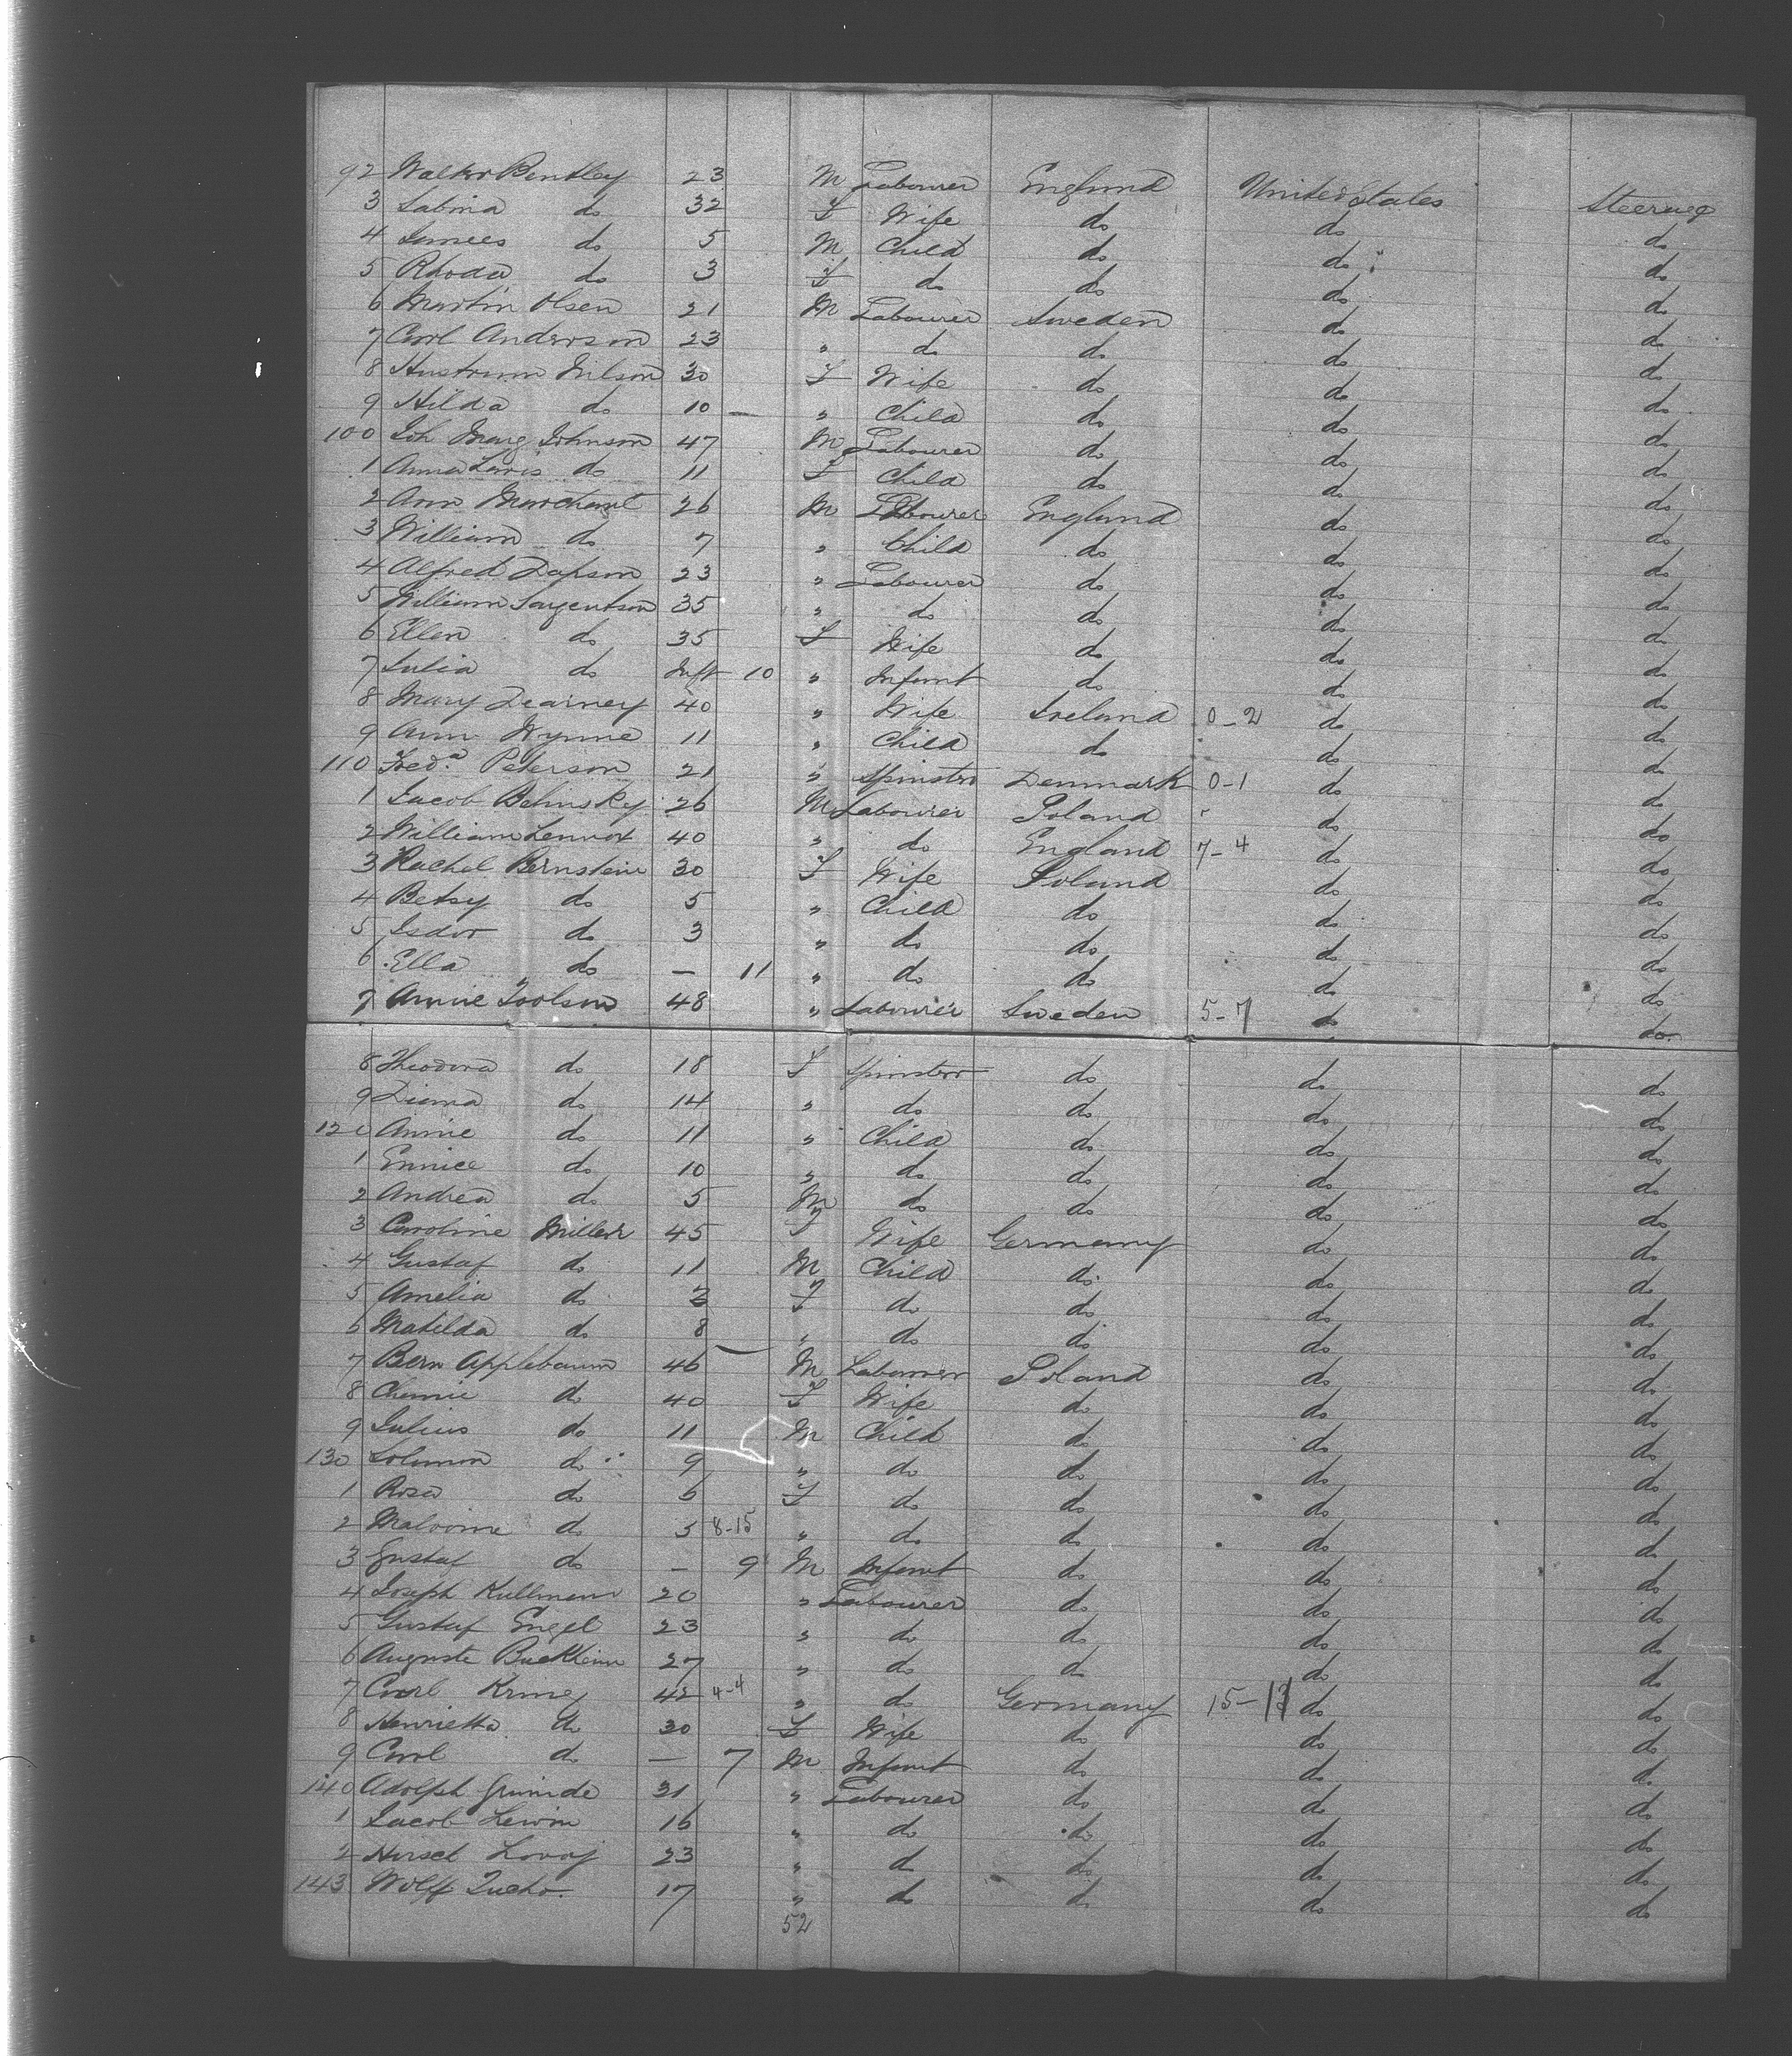 92 Walter Bentley 23 M Labourer England United States Steerage
3 Sabina do 32 F Wife do do do
4 James do 5 M Child do do do
5 Rhoda do 3 F do do do do
6 Martin Olsen 21 M Labourer Sweden do do
7 Carl Anderson 23 " do do do do
8 Hustrum Nilson 30 F Wife do do do
9 Hilda do 10 " Child do do do
100 Joh Marg Johnson 47 M Labourer do do do
1 Anna Lovis do 11 F Child do do do
2 Ann Marchant 26 M Labourer England do do
3 William do 7 " Child do do do
4 Alfred Dobson 23 " Labourer do do do
5 William Sargentson 35 " do do do do
6 Ellen do 35 F Wife do do do
7 Julia do Inft 10 " Infant do do do
8 Mary Dearney 40 " Wife Ireland 0-2 do do
9 Ann Wynne 11 " Child do do do
110 Fred.a Peterson 21 " Spinster Denmark 0-1 do do
1 Jacob Belinsky 26 M Labourer Poland do do
2 William Lennox 40 " do England 7-4 do do
3 Rachel Bernstein 30 F Wife Poland do do
4 Betsy do 5 " Child do do do
5 Isdor do 3 " do do do do
6 Ella do — 11 " do do do do
7 Annie Toolson 48 " Labourer Sweden 5-7 do do
8 Theodora do 18 F Spinster do do do
9 Diana do 14 " do do do do
120 Annie do 11 " Child do do do
1 Ennice do 10 " do do do do
2 Andrea do 5 M do do do do
3 Caroline Miller 45 F Wife Germany do do
4 Gustaf do 11 M Child do do do
5 Amelia do 3 F do do do do
6 Matilda do 8 " do do do do
7 Bern Applebaum 46 M Labourer Poland do do
8 Chamie do 40 F Wife do do do
9 Julius do 11 M Child do do do
130 Solomon do 9 " do do do do
1 Rosa do 6 F do do do do
2 Malvoine do 5 8-15 " do do do do
3 Gustaf do — 9 M Infant do do do
4 Joseph Kullmann 20 " Labourer do do do
5 Gustaf Engel 23 " do do do do
6 Auguste Buckheim 27 " do do do do
7 Carl Krney 42 4-4 " do Germany 15-13 do do
8 Henrietta do 30 F Wife do do do
9 Carl do — 7 M Infant do do do
140 Adolph Grunide 21 " Labourer do do do
1 Jacob Lewin 16 " do do do do
2 Hirsch 23 " do do do do
143 Wolff 17 " do do do do
52